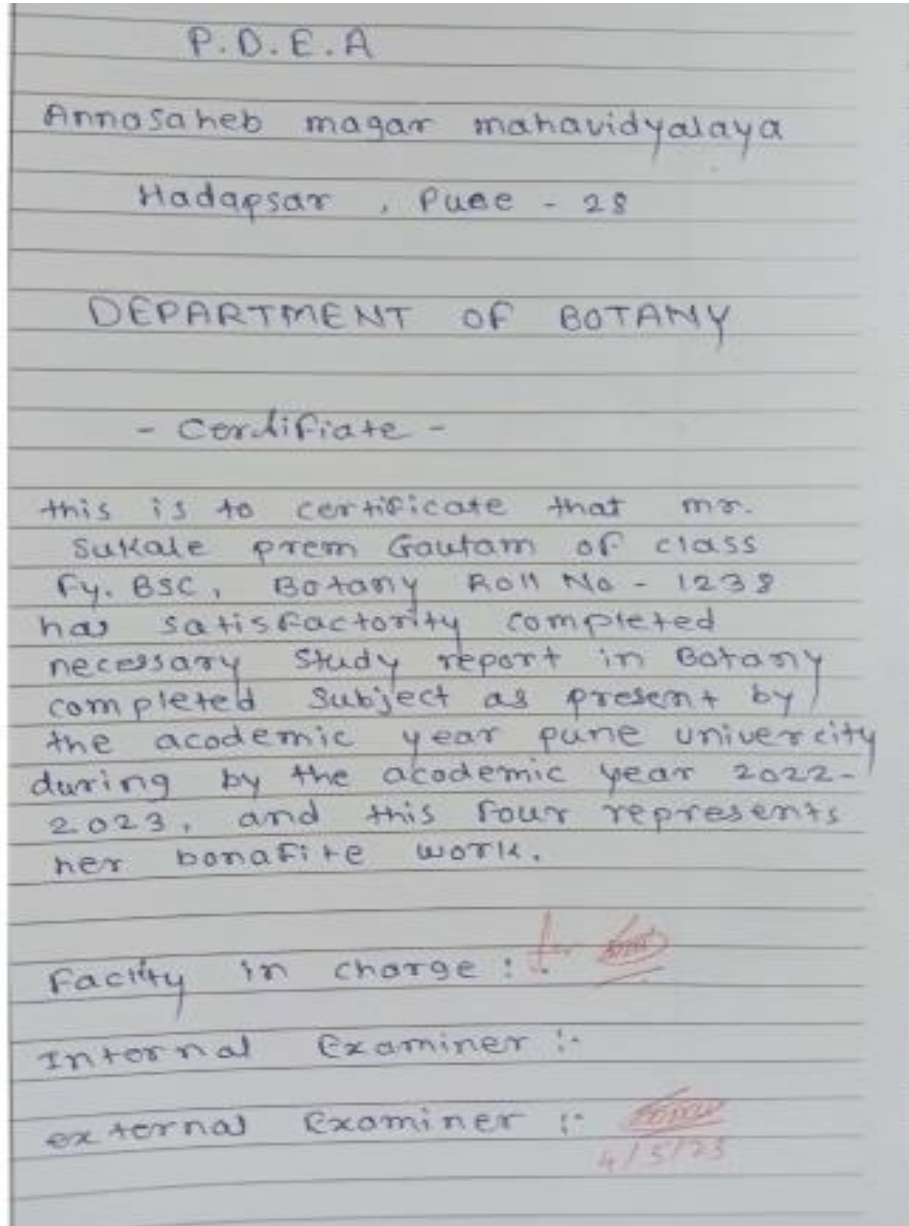 P.D.E.A
Annasaheb magar mahavidyalaya
Hadapsar , Puee - 28
DEPARTMENT OF BOTANY
- Cerdifiate -
this is to certificate that mr.
Sukale prem Gautam of class
Fy. BSC, Botany Roll No - 1238
has satisfactority completed
necessary Study report in Botany
completed Subject as present by
the acodemic year pune univercity
during by the acodemic year 2022-
2023, and this four represents
her bonafite work.
Faclity in charge :
Internal Examiner :-
external Examiner :-
4/5/23